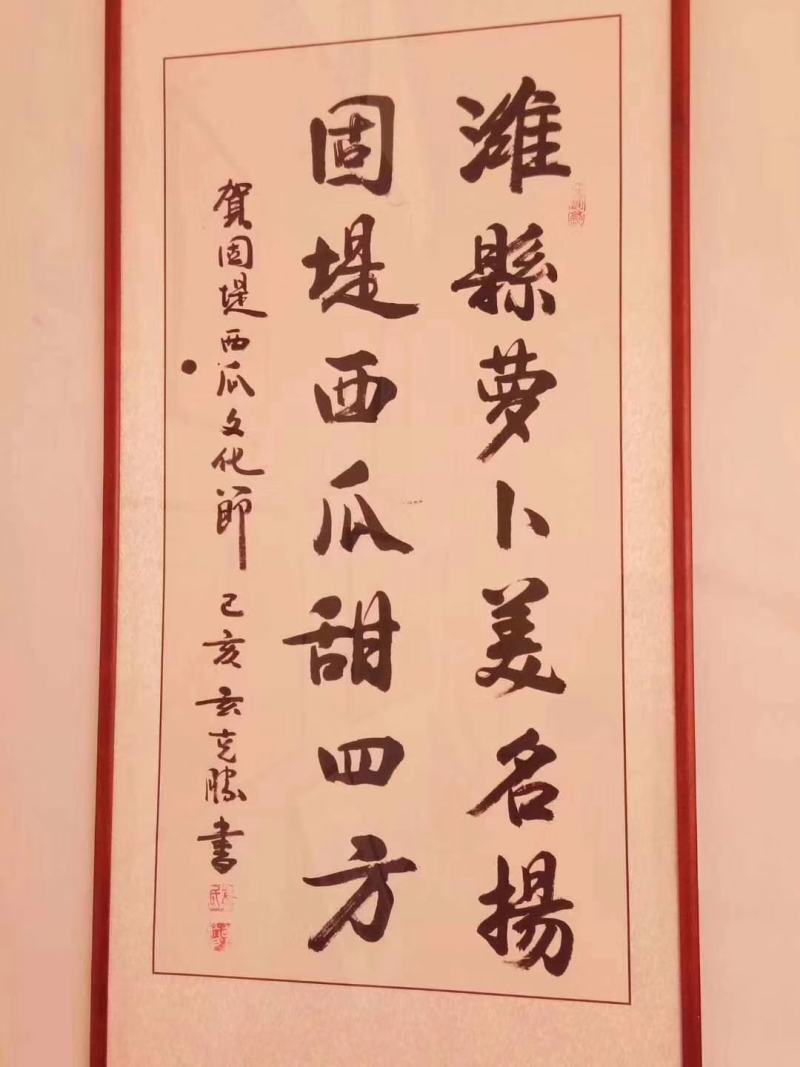 潍縣萝卜美名揚
固堤西瓜甜四方
賀固堤西瓜文化節 己亥 克勝書